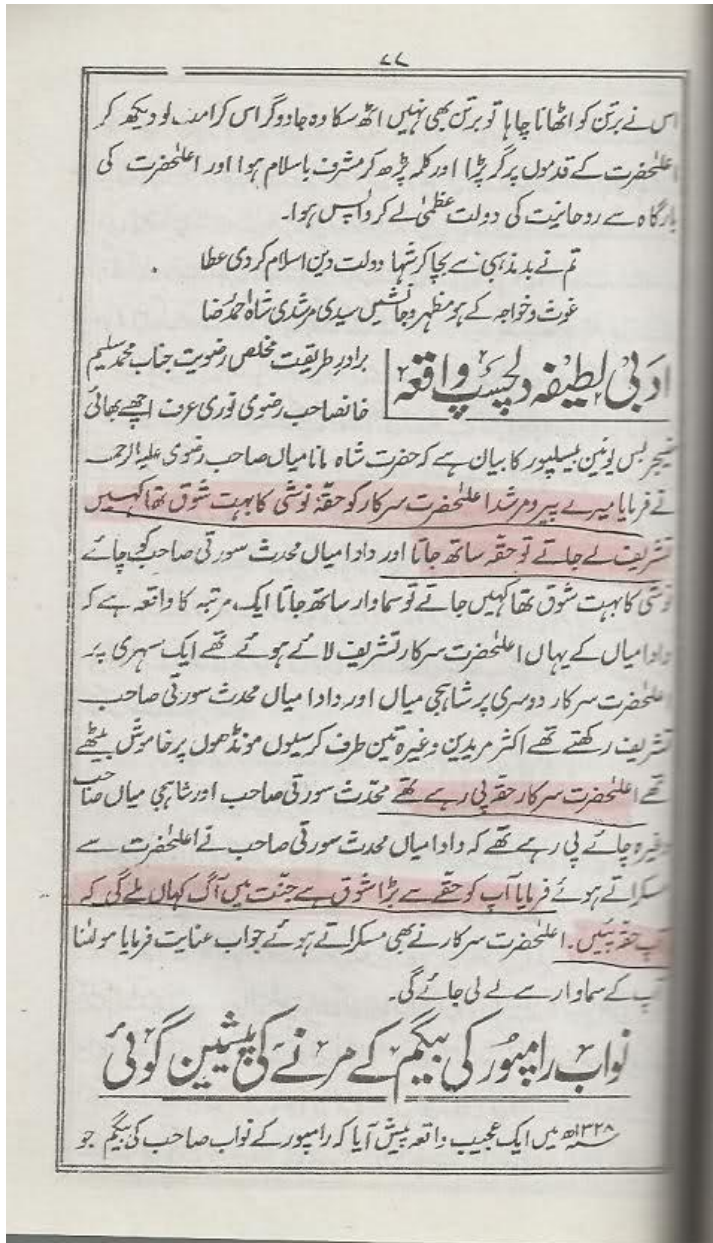 ۷۷
اس نے برتن کو اٹھانا چاہا تو برتن بھی نہیں اٹھ سکا وہ جادوگر اس کرامت کو دیکھ کر
اعلٰحضرت کے قدموں پر گر پڑا اور کلمہ پڑھ کر مشرف باسلام ہوا اور اعلٰحضرت کی
بارگاہ سے روحانیت کی دولت عظمیٰ لے کر واپس ہوا۔
تم نے بدمذہبی سے بچا کر شہا دولت دین اسلام کر دی عطا
غوث و خواجہ کے ہو مظہر و جانشیں سیدی مرشدی شاہ احمد رضا
ادبی لطیفہ دلچسپ واقعہ
برادر طریقت مخلص رضویت جناب محمد سلیم
خانصاحب رضوی نوری عرف اچھے بھائی
منیجر بس یونین بیسلپور کا بیان ہے کہ حضرت شاہ مانا میاں صاحب رضوی علیہ الرحمہ
نے فرمایا میرے پیر و مرشد اعلٰحضرت سرکار کو حقہ نوشی کا بہت شوق تھا کہیں
تشریف لے جاتے تو حقہ ساتھ جاتا اور دادا میاں محدث سورتی صاحب کو چائے
نوشی کا بہت شوق تھا کہیں جاتے تو سماوار ساتھ جاتا ایک مرتبہ کا واقعہ ہے کہ
دادا میاں کے یہاں اعلٰحضرت سرکار تشریف لائے ہوئے تھے ایک مسہری پر
اعلٰحضرت سرکار دوسری پر شاہجی میاں اور دادا میاں محدث سورتی صاحب
تشریف رکھتے تھے اکثر مریدین وغیرہ تین طرف کرسیوں مونڈھوں پر خاموش بیٹھے
تھے اعلٰحضرت سرکار حقہ پی رہے تھے محدث سورتی صاحب اور شاہجی میاں صاحب
وغیرہ چائے پی رہے تھے کہ دادا میاں محدث سورتی صاحب نے اعلٰحضرت سے
مسکراتے ہوئے فرمایا آپ کو حقے سے بڑا شوق ہے جنت میں آگ کہاں ملے گی کہ
آپ حقہ پئیں۔ اعلٰحضرت سرکار نے بھی مسکراتے ہوئے جواب عنایت فرمایا مولٰنا
آپ کے سماوار سے لے لی جائے گی۔
نواب رامپور کی بیگم کے مرنے کی پیشین گوئی
۱۳۲۸ھ میں ایک عجیب واقعہ پیش آیا کہ رامپور کے نواب صاحب کی بیگم جو